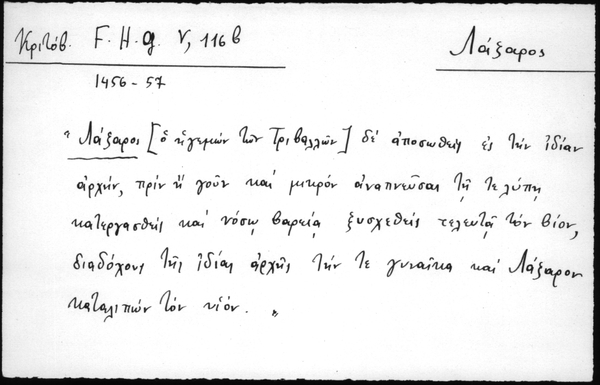 Κριτόβ. F.H.g. V, 116b
Λάζαρος
1456-57
"Λάζαρος [ὁ ἡγεμών τῶν Τριβαλλῶν] δέ ἀποσωθείς ἐς τήν ἰδίαν
ἀρχήν, πρίν ἤ γοῦν καί μικρόν ἀναπνεῦσαι τῇ τε λύπῃ
κατεργασθείς καί νόσῳ βαρείᾳ ξυσχεθείς τελευτᾷ τόν βίον,
διαδόχους τῆς ἰδίας ἀρχῆς τήν τε γυναῖκα καί Λάζαρον
καταλιπών τόν υἱόν. "